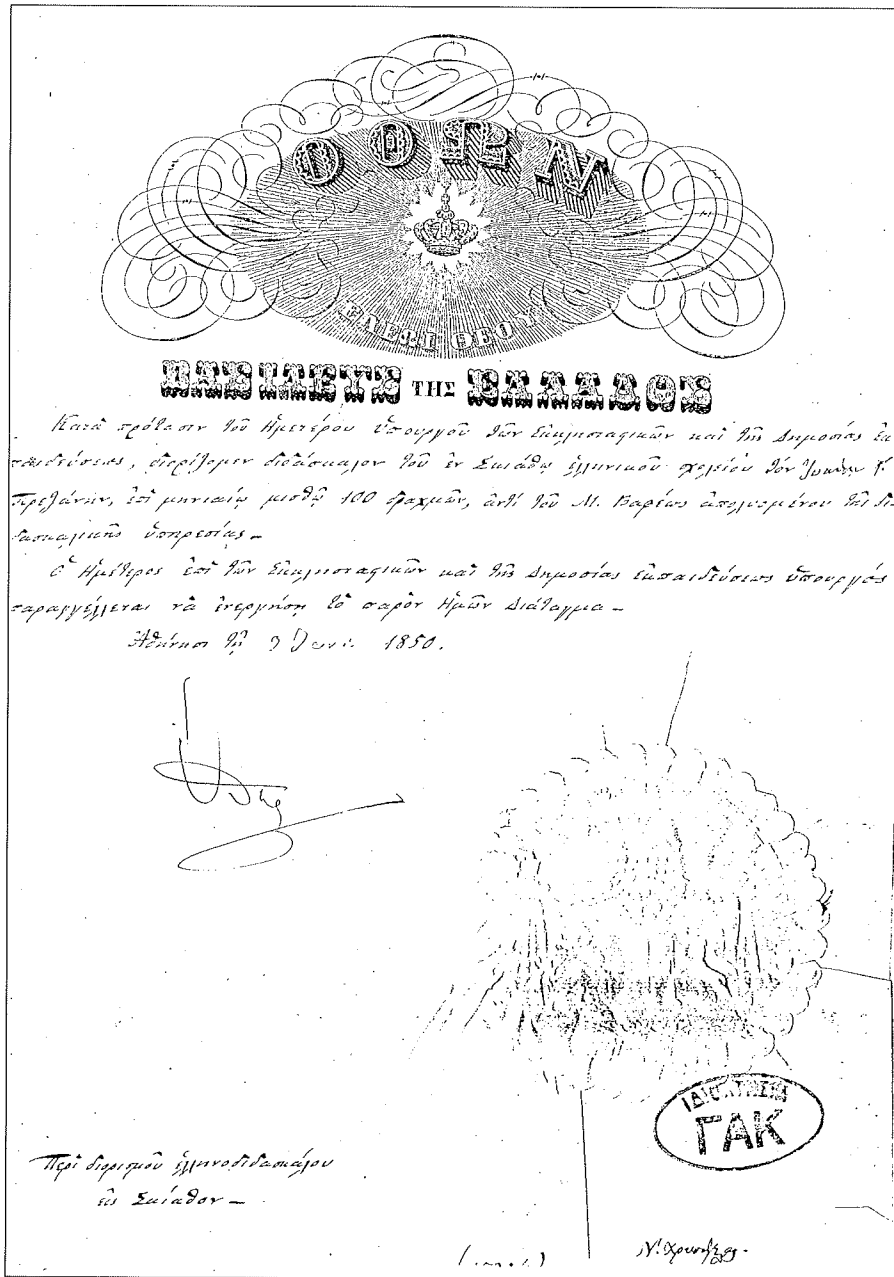 ΟΘΩΝ
ΕΛΕΩΙ ΘΕΟΥ
ΒΑΣΙΛΕΥΣ ΤΗΣ ΕΛΛΑΔΟΣ
Κατὰ πρότασιν τοῦ Ἡμετέρου Ὑπουργοῦ τῶν Ἐκκλησιαστικῶν καὶ τῆς Δημοσίας ἐκ
παιδεύσεως, διορίζομεν διδάσκαλον τοῦ ἐν Σκιάθῳ ἑλληνικοῦ σχολείου τὸν
ἐπὶ μηνιαίῳ μισθῷ 100 δραχμῶν, ἀντὶ τοῦ Μ. Βαρέως ἀπολυομένου τῆς δι
δασκαλικῆς ὑπηρεσίας –
Ὁ Ἡμέτερος ἐπὶ τῶν Ἐκκλησιαστικῶν καὶ τῆς Δημοσίας ἐκπαιδεύσεως Ὑπουργὸς
παραγγέλλεται νὰ ἐνεργήσῃ τὸ παρὸν Ἡμῶν Διάταγμα –
Ἀθήνησι τῇ 1850.
ΙΔΙΟΚΤΗΣΙΑ
ΓΑΚ
Περὶ διορισμοῦ ἑλληνοδιδασκάλου
εἰς Σκίαθον –